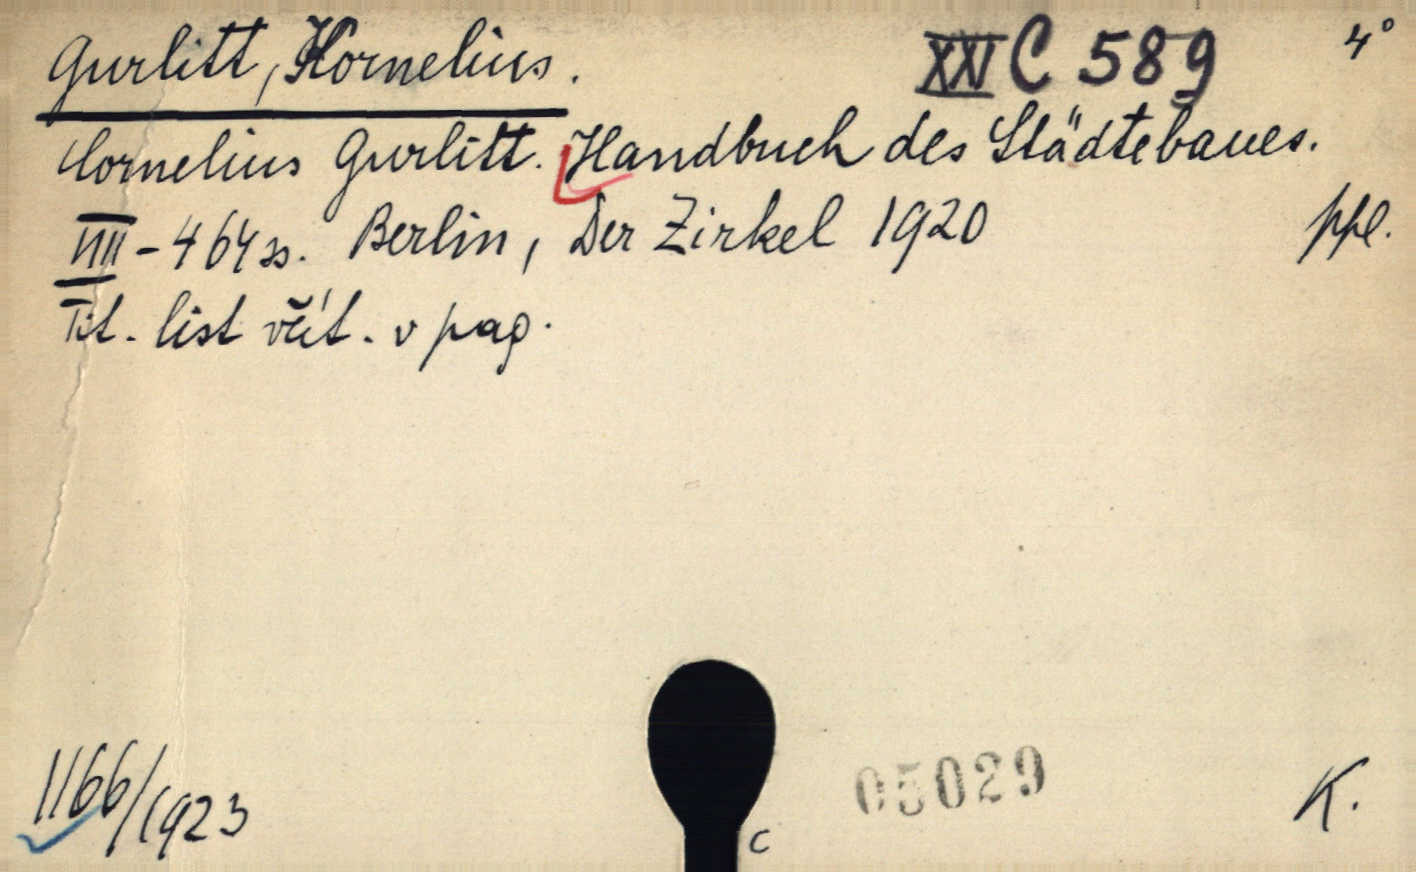 Gurlitt, Kornelius. XXI C 589 4°
Cornelius Gurlitt. Handbuch des Städtebaues.
VIII - 464 ss. Berlin, Der Zirkel 1920 ppl.
Tit. list včít. v pag.
1166/1923
05029
K.
C